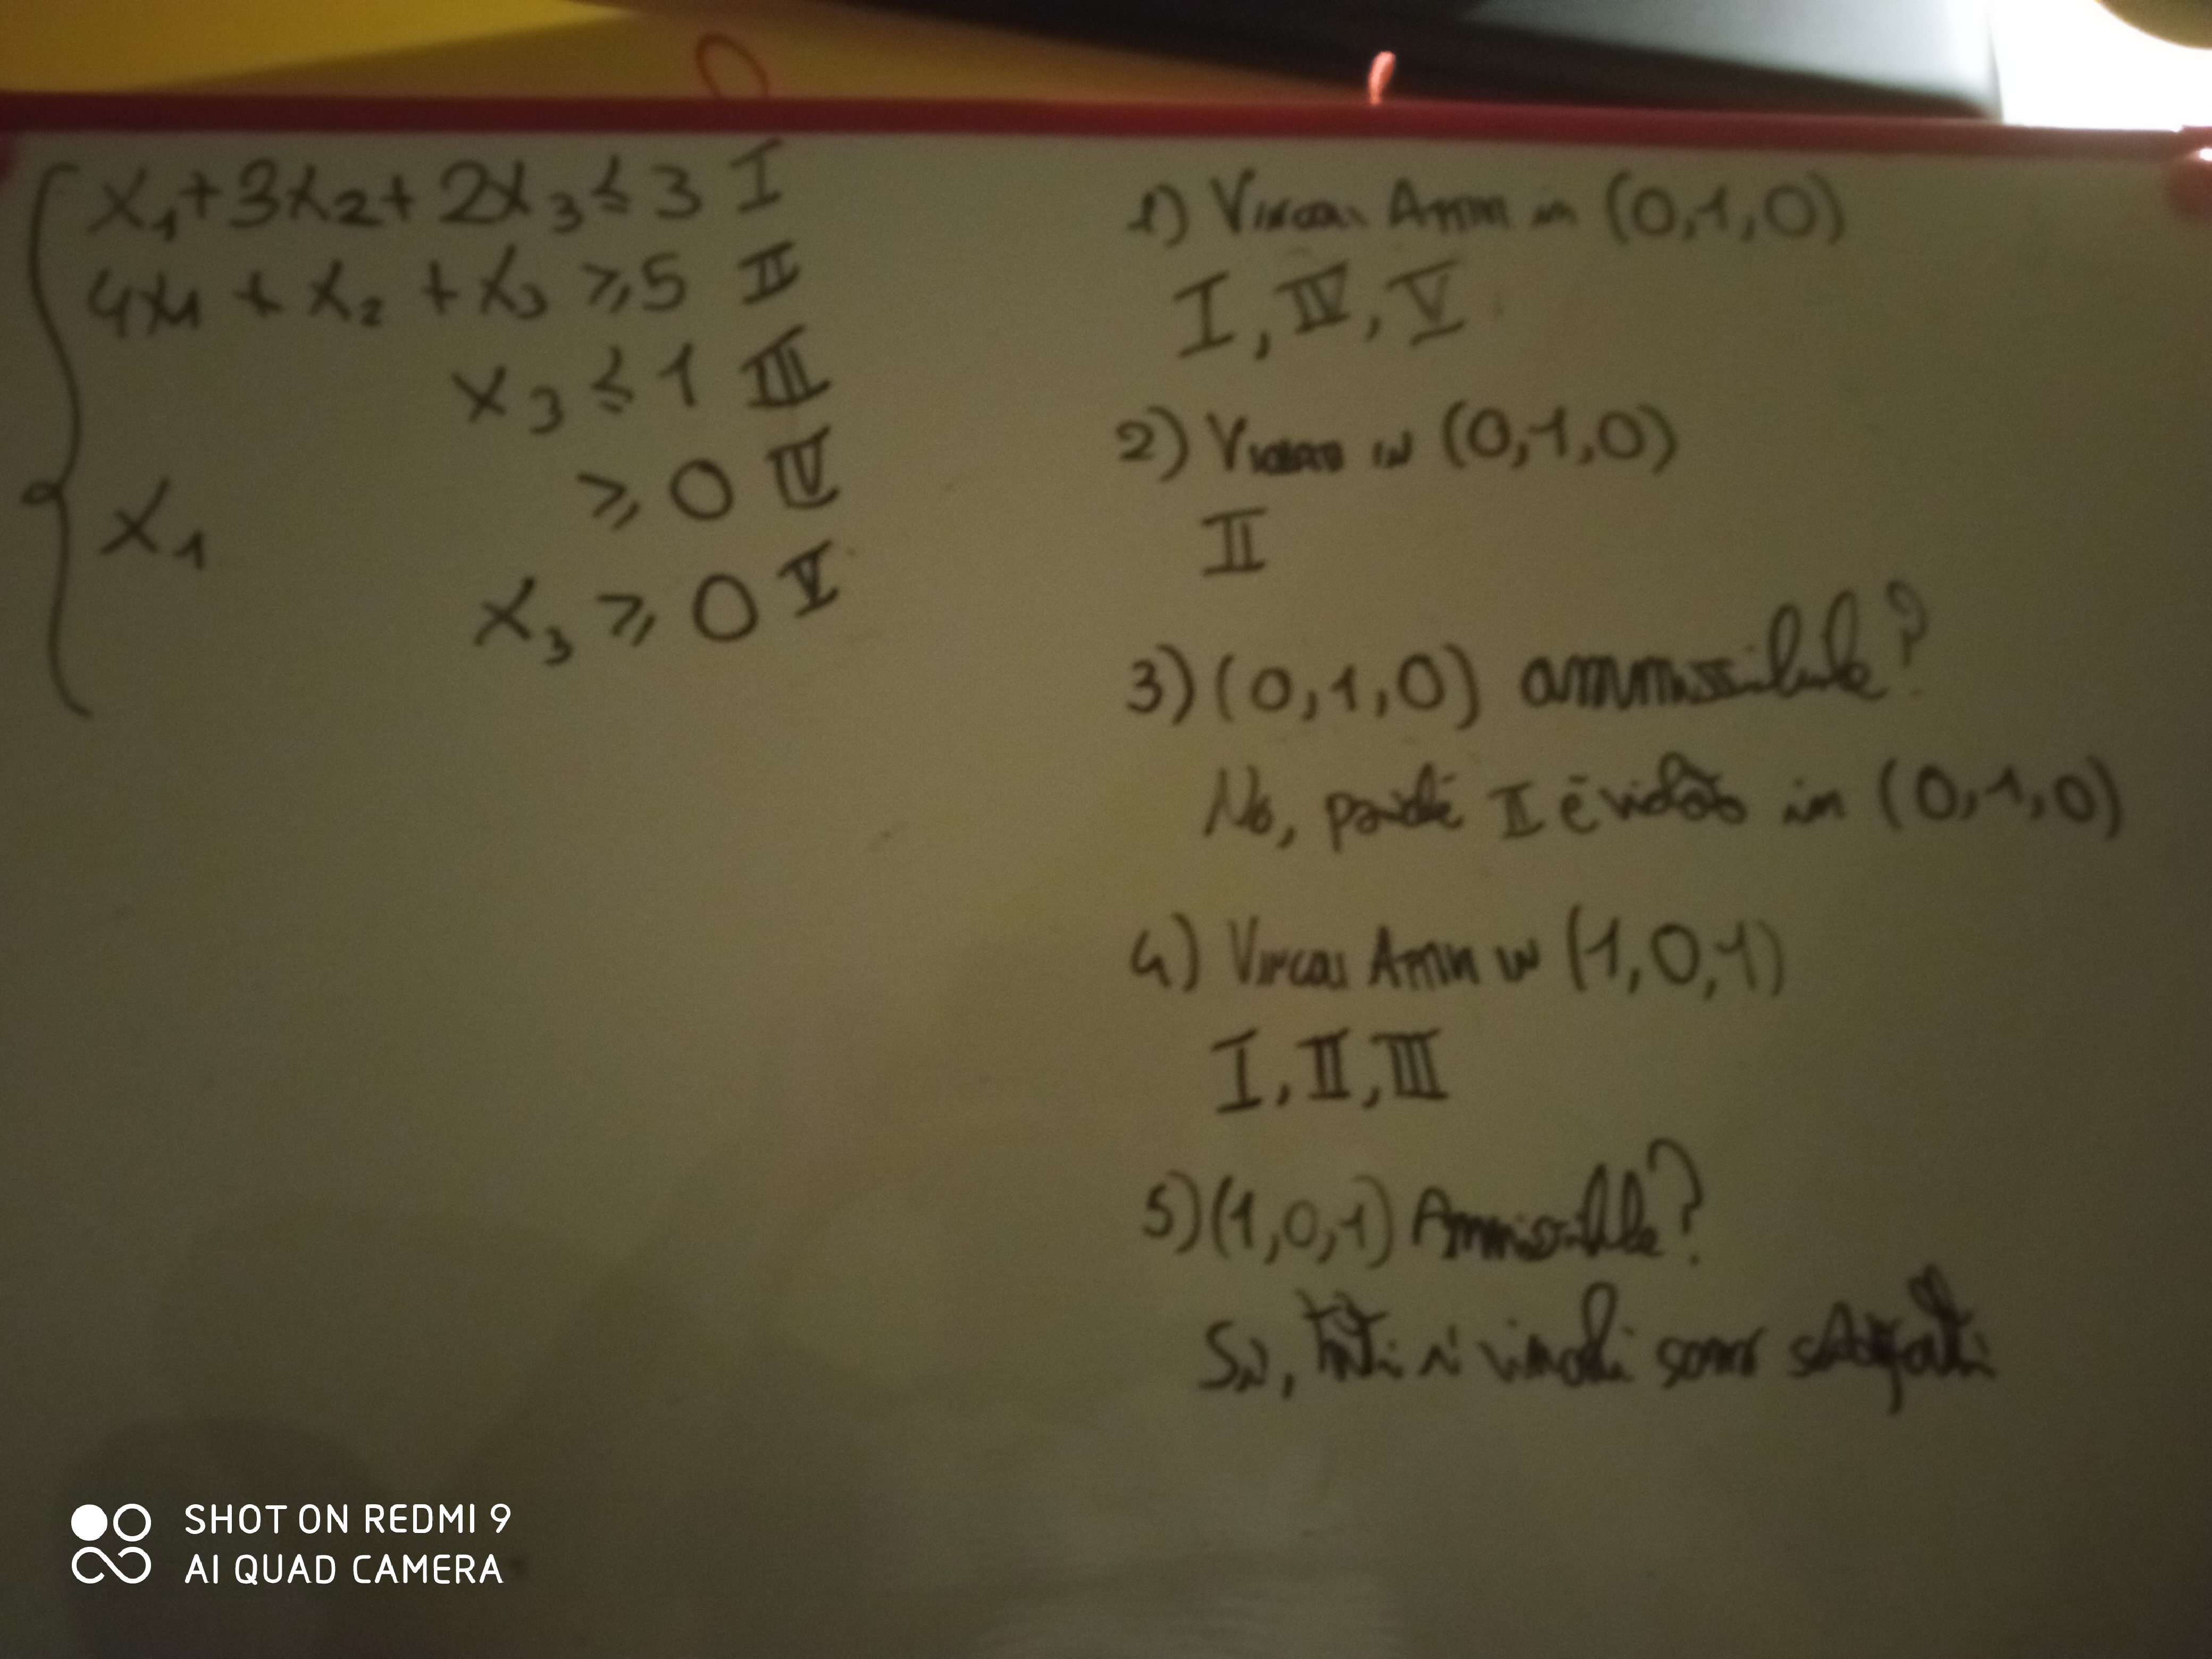 x₁+3x₂+2x₃≤3 I
4x₁+x₂+x₃≥5 II
x₃≤1 III
x₁ ≥0 IV
x₃≥0 V
1) in (0,1,0)
I, IV, V
2) in (0,1,0)
II
3) (0,1,0) ammissibile?
No, poiché II è violato in (0,1,0)
4) Vincoli in (1,0,1)
I, II, III
5) (1,0,1) Ammissibile?
Si, tutti i vincoli sono
SHOT ON REDMI 9
AI QUAD CAMERA